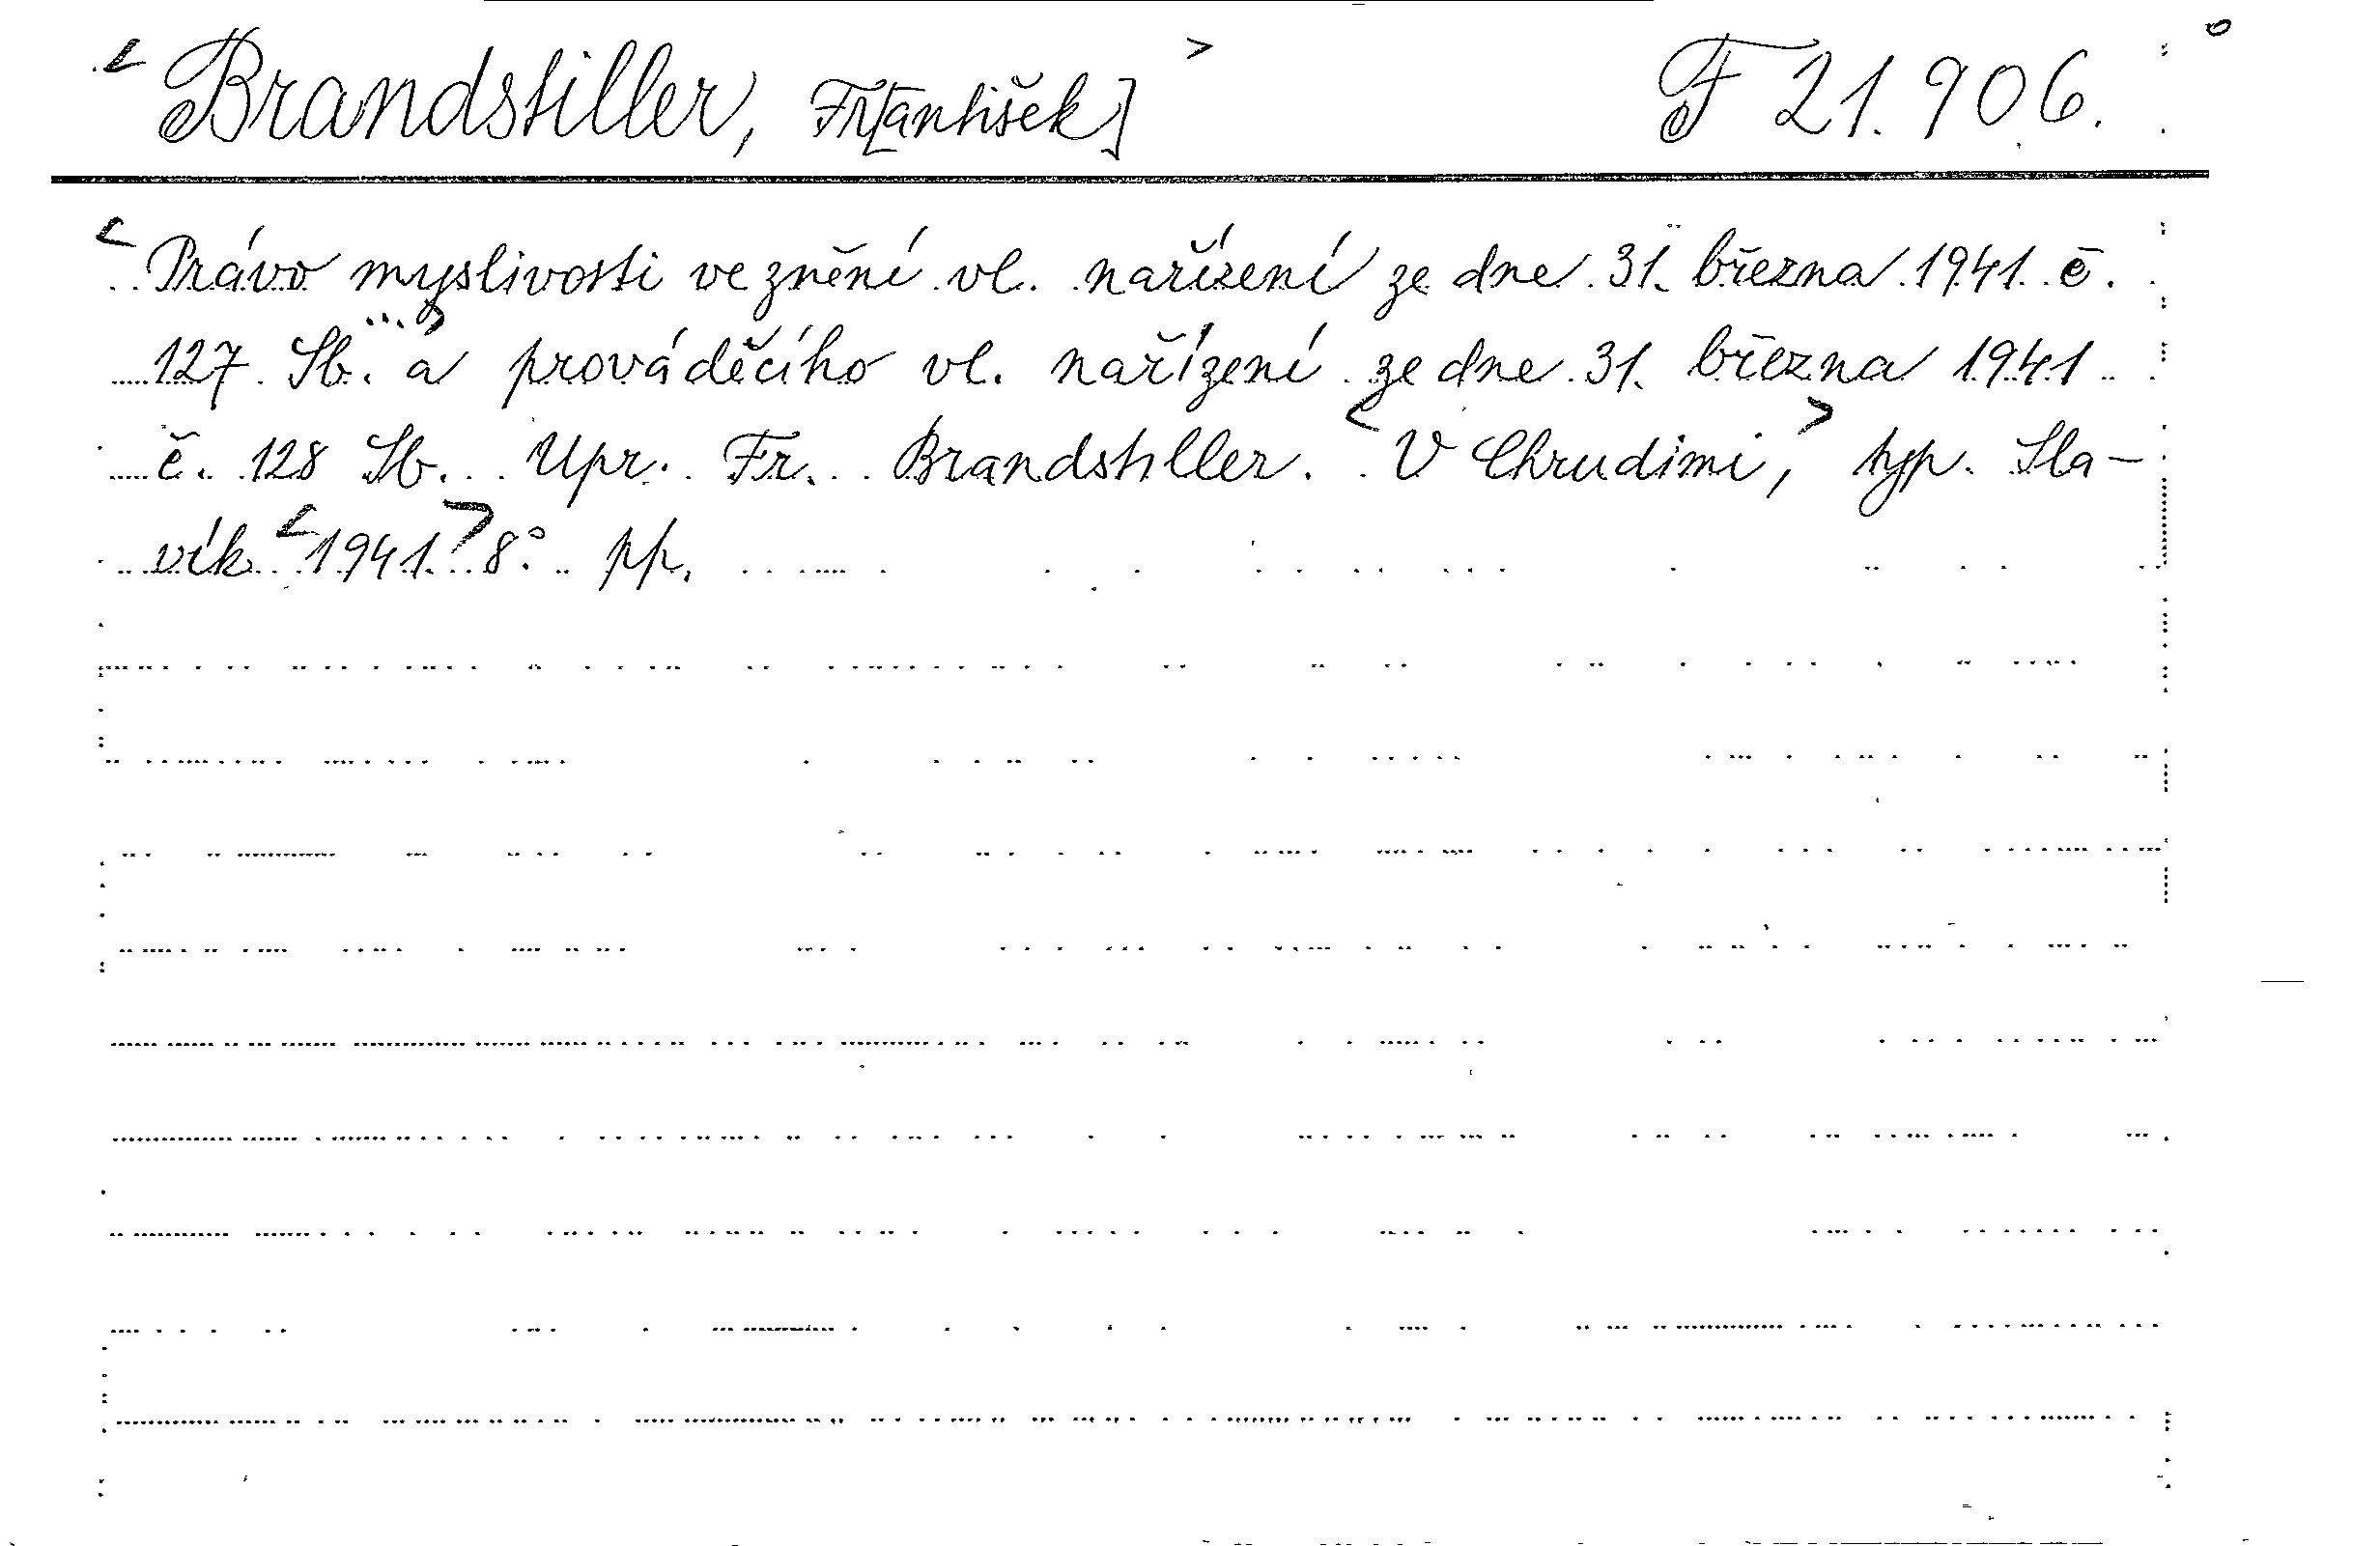 <Brandstiller, Fr[antišek]> F 21.906.
<Právo myslivosti ve znění vl. nařízení ze dne 31. března 1941 č.
127 Sb. ...> a prováděcího vl. nařízení ze dne 31. března 1941
č. 128 Sb. Upr. Fr. Brandstiller. <V Chrudimi,> typ. Sla-
vík <1941> 8° pp.